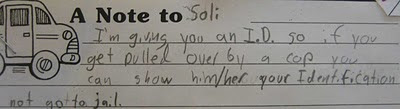 A Note to Soli
I'm giving you an I.D. so if you
get pulled over by a cop you
can show him/her your Identification
not got to jail.